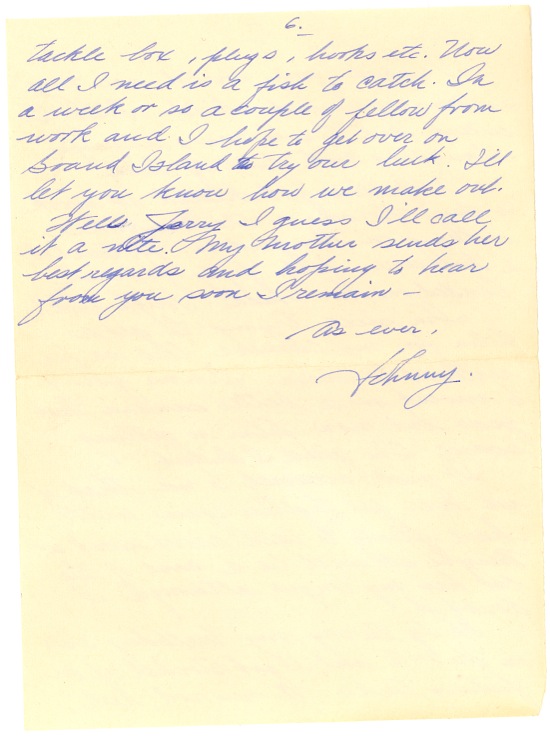 6.
tackle box, plugs, hooks etc. Now
all I need is a fish to catch. In
a week or so a couple of fellow from
work and I hope to get over on
Grand Island to try our luck. I'll
let you know how we make out.
Well Jerry I guess I'll call
it a nite. My Mother sends her
best regards and hoping to hear
from you soon I remain —
As ever,
Johnny.